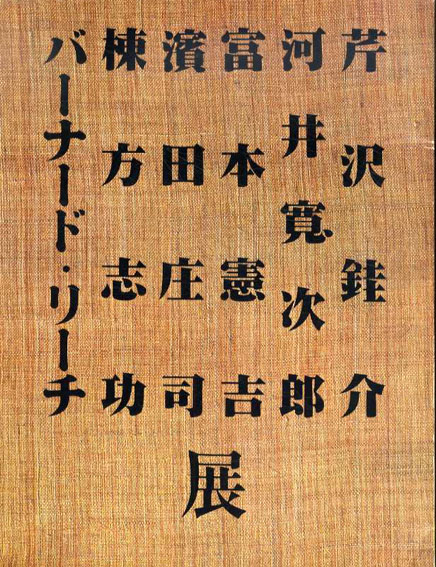 芹沢銈介
河井寛次郎
富本憲吉
濱田庄司
棟方志功
バーナード・リーチ
展